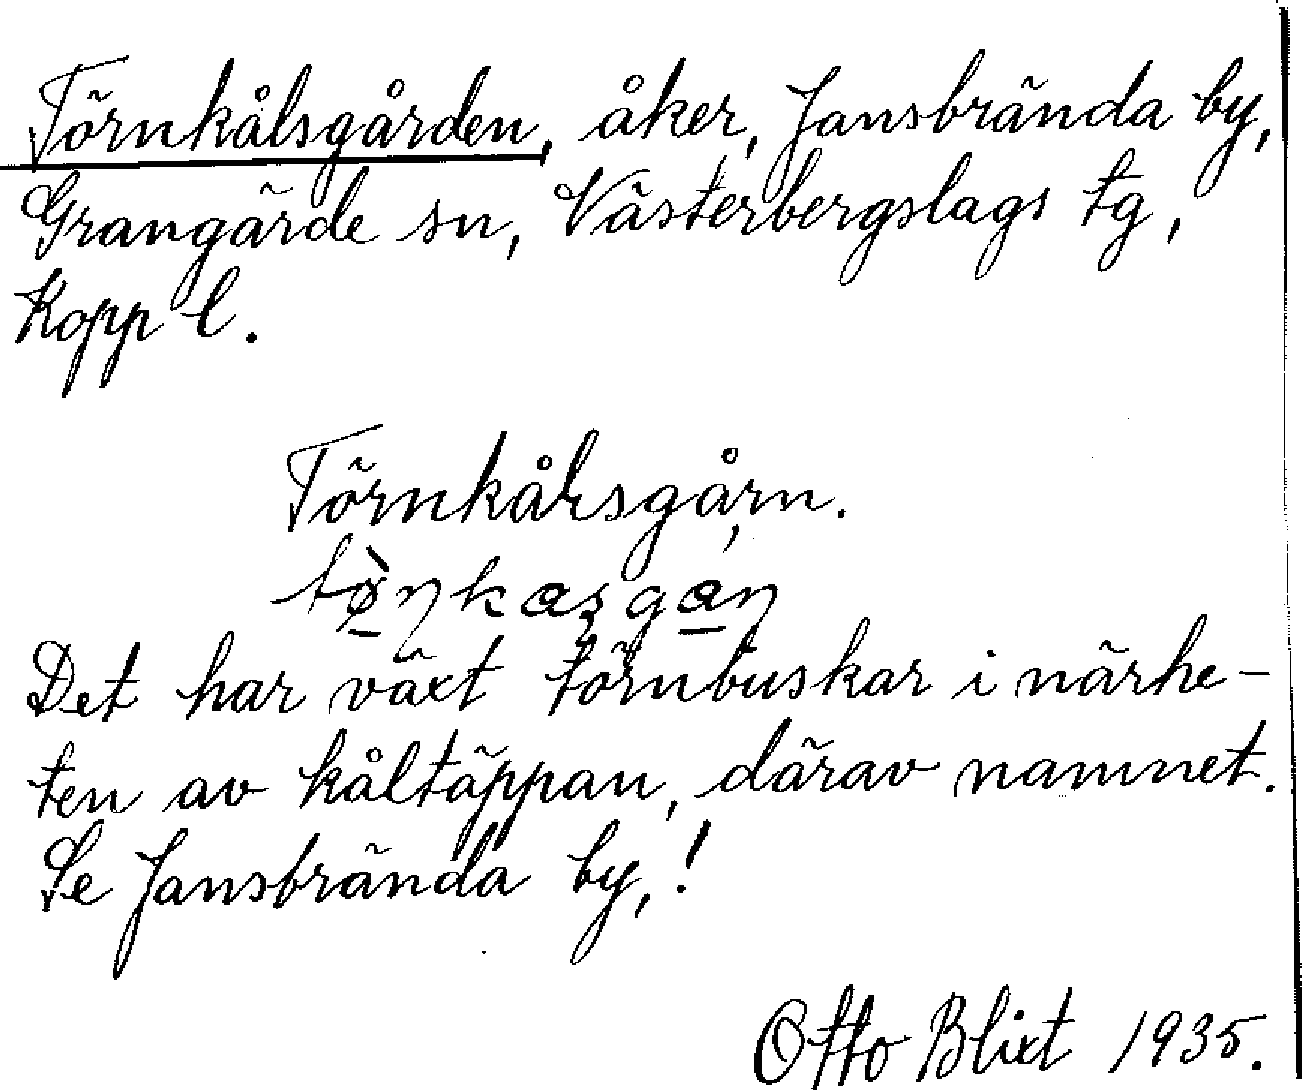 Törnkålsgården, åker, Jansbrända by,
Grangärde sn, Västerbergslags tg,
Kopp l.
Törnkålsgårn.
Det har växt törnbuskar i närhe-
ten av kåltäppan, därav namnet.
Se Jansbrända by,!
Otto Blixt 1935.